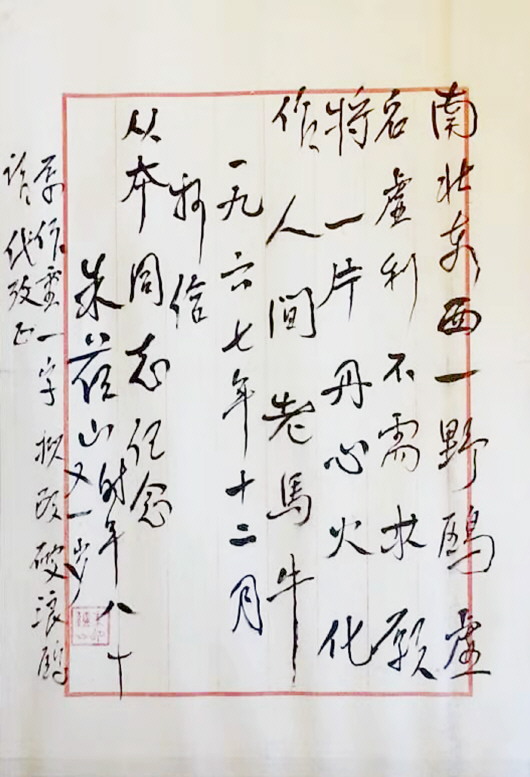 南北东西一野鸥虚
名虚利不需求愿
将一片丹心火化
作人间老马牛
一九六七年十二月
信
从本同志纪念
朱蕴山时年八十又一岁
原作一字拟改破浪鸥
请代改正